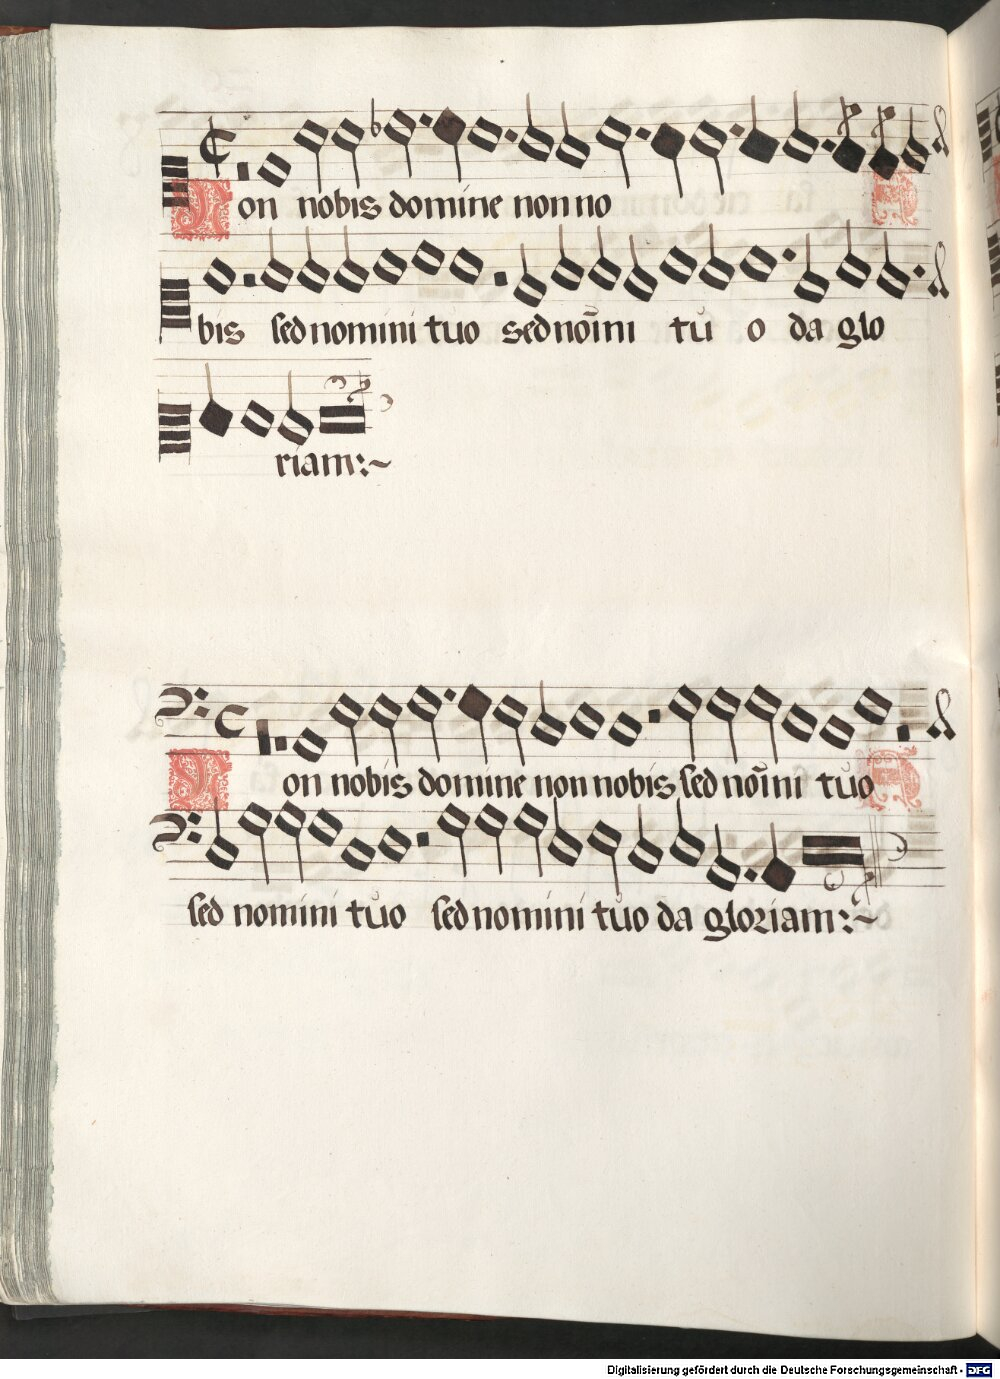 Non nobis domine non no
bis sed nomini tuo sed noi̅ni tu o da glo
riam:~
Non nobis domine non nobis sed noi̅ni tuo
sed nomini tuo sed nomini tuo da gloriam:~
Digitalisierung gefördert durch die Deutsche Forschungsgemeinschaft - DFG